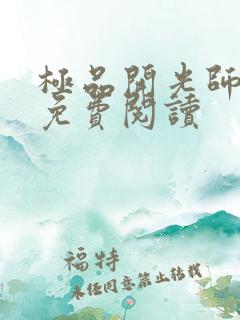 極品開光師
免費閱讀
福特
未经同意禁止转载